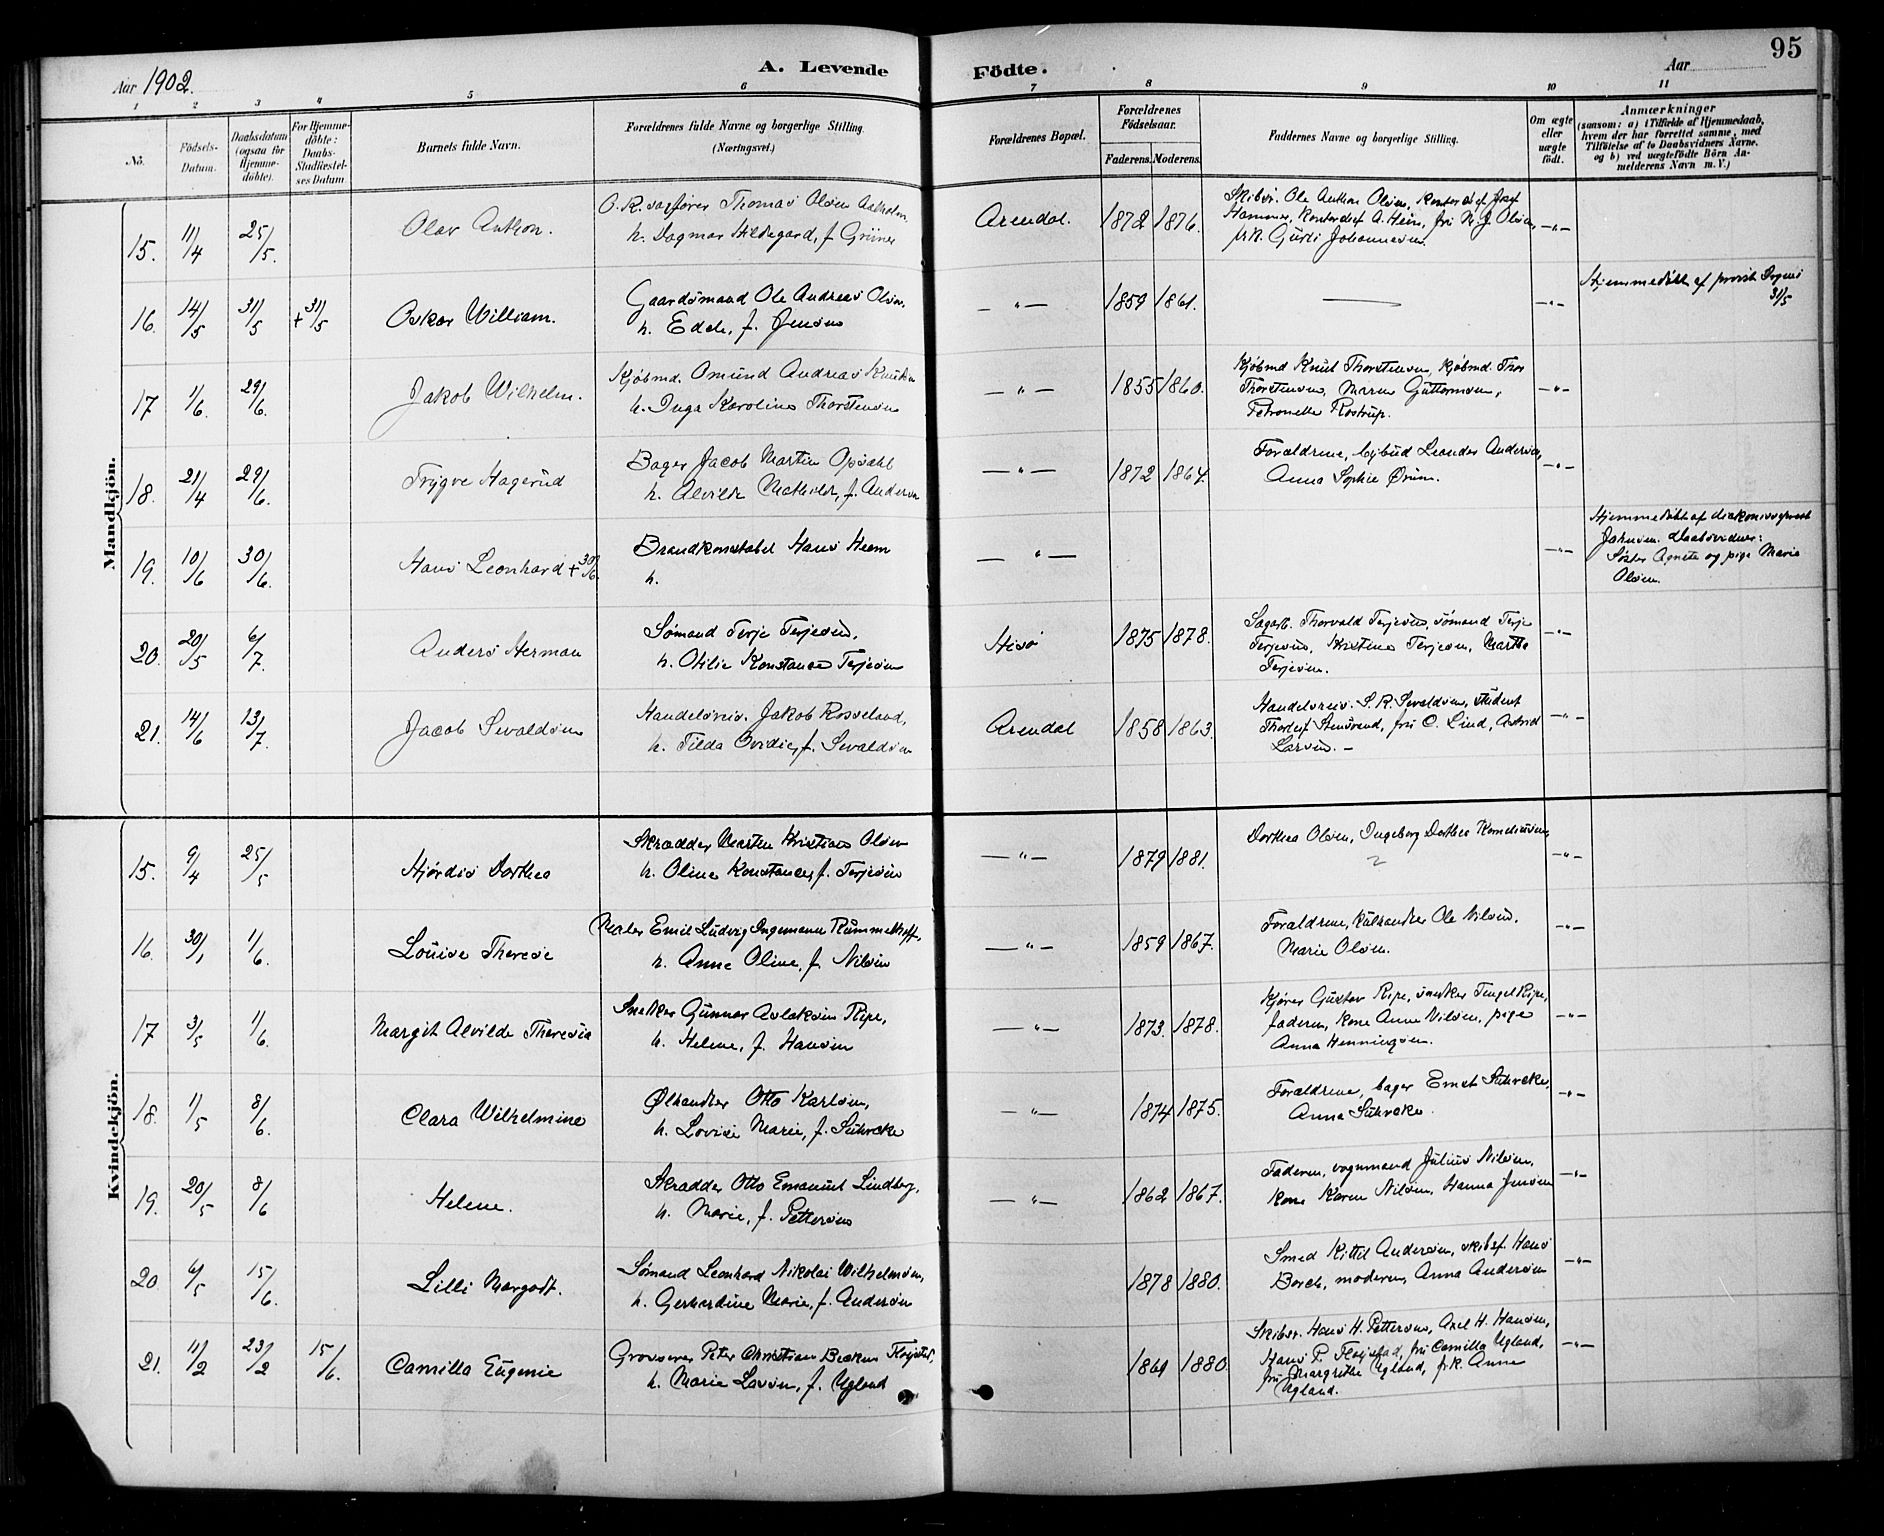 95
Aar 1902.
A. Levende Födte.
Aar
1 2 3 4 5 6 7 8 9 10 11
No.
Födsels-Datum.
Daabsdatum (ogsaa for Hjemme-döbte).
For Hjemme-döbte: Daabs-Stadfæstelses Datum
Barnets fulde Navn.
Forældrenes fulde Navne og borgerlige Stilling. (Næringsvei.)
Forældrenes Bopæl.
Forældrenes Födselsaar.
Faderens. Moderens.
Faddernes Navne og borgerlige Stilling.
Om ægte eller uægte födt.
Anmærkninger
(saasom: a) i Tilfælde af Hjemmedaab, hvem der har forrettet samme, med Tilföielse af to Daabsvidners Navne, og b) ved uægtefödte Börn Anmelderens Navn m. V.)
Mandkjön.
15. 11/4 25/5. Olav Anthon.
O.R. sagfører Thomas Olsen Aalholm,
h. Dagmar Hildegard, f. Grüner
Arendal. 1872 1876.
Skibsr. Ole Anthon Olsen, Kontorchef Josef
Hammer, Kontorchef A. Hein, fru N. J. Olsen,
frk. Gusti Johannesen. —"—
16. 14/5 31/5 + 31/5 Oskar William.
Gaardsmand Ole Andreas Olsen,
h. Edele, f. Jensen
—"— 1859 1861. — —"—
Hjemmedøbt af provst Sogeni
31/5
17 1/6. 29/6. Jakob Wilhelm.
Kjøbmd. Omund Andreas Knutsen
h. Inga Karoline Thorstensen
—"— 1855 1860.
Kjøbmd Knut Thorstensen, kjøbmd. Thor
Thorstensen, Maren Guttormsen,
Petronelle Rostrup. —"—
18. 21/4 29/6. Trygve Hagerud
Bager Jacob Martin Opsahl
h. Alvilde Mathilde, f. Andersen
—"— 1872 1864.
Forældrene, bybud Leonder Andersen,
Anna Sophie Ørum. —"—
19. 10/6 30/6. Hans Leonhard + 30/6.
Brandkonstabel Hans Heem
h.
—"— —"—
Hjemmedøbt af diakonissepræst
Johnsen. Daabsvidner:
Søster Agnete og pige Marie
Olsen.
20. 20/5 6/7. Anders Herman
Sømand Terje Terjesen,
h. Otilie Konstanse Terjesen
Hisø 1875 1878.
Sagarb. Thorvald Terjesen, sømand Terje
Terjesen, Kristine Terjesen, Marthe
Terjesen. —"—
21. 14/6 13/7. Jacob Sevaldsen
Handelsreis. Jakob Rosseland,
h. Tilda Ovidie, f. Sevaldsen
Arendal 1858 1863.
Handelsreis. S. R. Sevaldsen, student
Thorleif Stensrud, fru C. Lind, Astrid
Larsen. — —"—
Kvindekjön.
15. 9/4 25/5 Hjørdis Dorthea
Skrædder Martin Kristian Olsen
h. Oline Konstance, f. Terjesen
—"— 1879 1881.
Dorthea Olsen, Ingeborg Dorthea Korneliusen, —"—
16. 30/1 1/6. Louise Therese
Maler Emil Ludvig Ingemann Rummelhoff,
h. Anne Oline, f. Nilsen
—"— 1859 1867.
Forældrene, kulhandler Ole Nilsen,
Marie Olsen. —"—
17 3/5 1/6. Margit Alvilde Theresia
Snekker Gunnar Aslaksen Ripe,
h. Helene, f. Hansen
—"— 1873. 1878.
Kjører Gustav Ripe, snekker Tengel Ripe,
faderen, kone Anne Nilsen, pige
Anna Henningsen. —"—
18. 1/5 8/6. Clara Wilhelmine
Ølhandler Otto Karlsen,
h. Lovise Marie, f. Suhrcke
—"— 1874 1875.
Forældrene, bager Ernst Suhrcke,
Anna Suhrcke. —"—
19. 20/5 8/6 Helene.
Skrædder Otto Emanuel Lindberg,
h. Marie, f. Pettersen
—"— 1862 1867.
Faderen, vognmand Julius Nilsen,
kone Karen Nilsen, Hanna Jensen —"—
20. 6/5 15/6. Lilli Margodt.
Sømand Leonhard Nikolai Wilhelmsen,
h. Gerhardine Marie, f. Andersen
1878 1880.
Smed Kittil Andersen, skibsf. Hans
Borch, moderen, Anna Andersen —"—
21. 11/2 23/2 15/6. Camilla Eugenie
Grosserer Peter Christian Backen Fløistad,
h. Marie Lavin, f. Ugland
1864 1880
Skibsr. Hans H. Pettersen, Axel H. Hansen,
Hans P. Fløistad, fru Camilla Ugland,
fru Margrethe Ugland, frk. Anne
Ugland. —"—